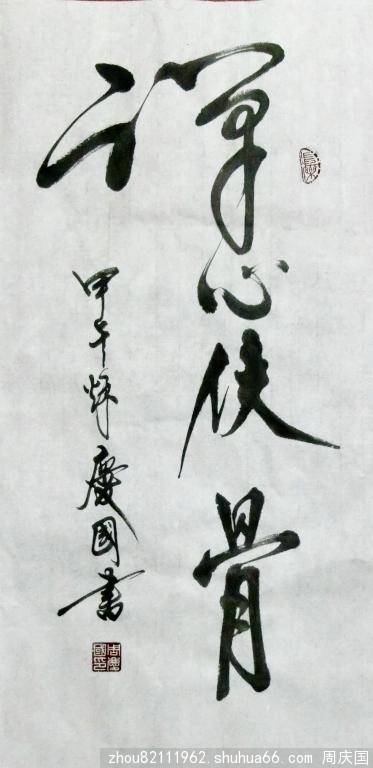 禅心侠骨
甲午 慶國書
周慶國印
zhou82111962.shuhua66.com 周庆国